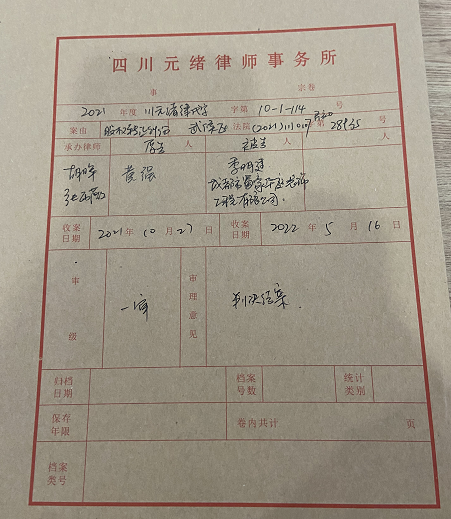 四川元绪律师事务所
事 宗卷
2021 年度 川元绪律 字第 10-1-114 号
案由 股权转让纠纷 武侯区 法院 (2021)川0107民初 第 28935 号
承办律师 原告 人 被告 人
胡 黄强 李明建
张 成都市 装饰
工程有限公司
收案日期 2021 年 10 月 27 日 收案日期 2022 年 5 月 16 日
审级 一审 审理意见 判决结案.
归档日期 档案号数 统计类别
保存年限 卷内共计 页
档案类号